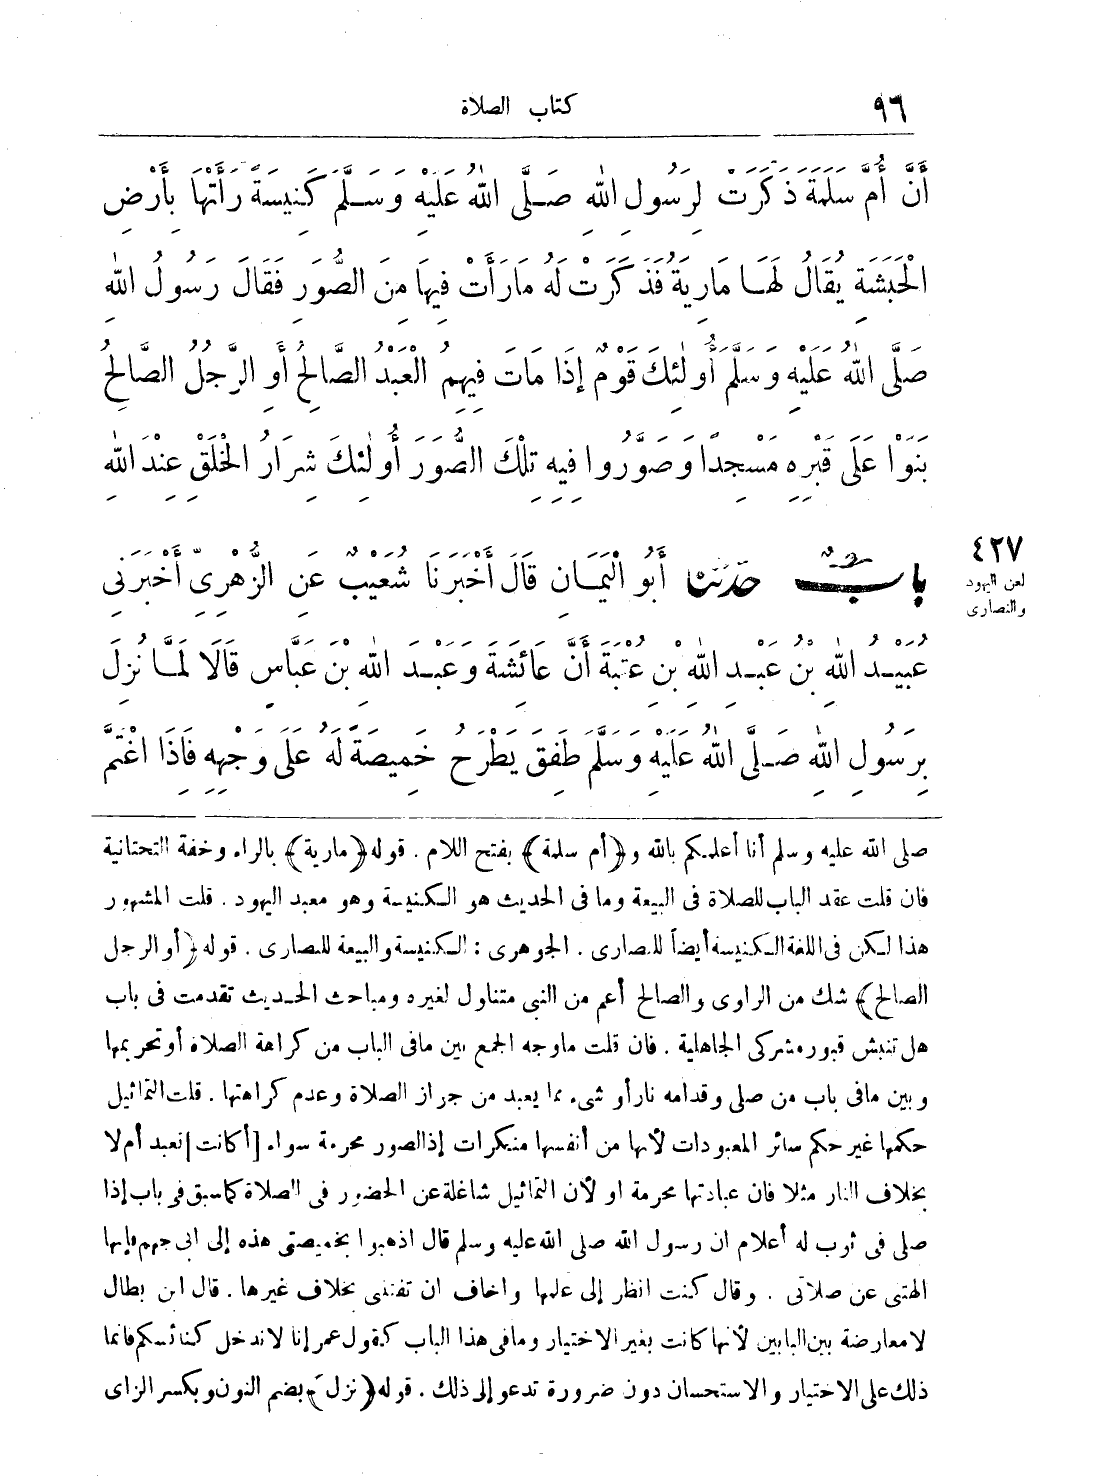 ٩٦ كتاب الصلاة
أَنَّ أُمَّ سَلَمَةَ ذَكَرَتْ لِرَسُولِ اللهِ صَلَّى اللهُ عَلَيْهِ وَسَلَّمَ كَنِيسَةً رَأَتْهَا بِأَرْضِ
الْحَبَشَةِ يُقَالُ لَهَا مَارِيَةُ فَذَكَرَتْ لَهُ مَارَأَتْ فِيهَا مِنَ الصُّوَرِ فَقَالَ رَسُولُ اللهِ
صَلَّى اللهُ عَلَيْهِ وَسَلَّمَ أُولٰئِكَ قَوْمٌ إِذَا مَاتَ فِيهِمُ الْعَبْدُ الصَّالِحُ أَوِ الرَّجُلُ الصَّالِحُ
بَنَوْا عَلَى قَبْرِهِ مَسْجِدًا وَصَوَّرُوا فِيهِ تِلْكَ الصُّوَرَ أُولٰئِكَ شِرَارُ الْخَلْقِ عِنْدَ اللهِ
٤٢٧
لعن اليهود
والنصارى
بابٌ حَدَّثَنَا أَبُو الْيَمَانِ قَالَ أَخْبَرَنَا شُعَيْبٌ عَنِ الزُّهْرِيِّ أَخْبَرَنِي
عُبَيْدُ اللهِ بْنُ عَبْدِ اللهِ بْنِ عُتْبَةَ أَنَّ عَائِشَةَ وَعَبْدَ اللهِ بْنَ عَبَّاسٍ قَالَا لَمَّا نُزِلَ
بِرَسُولِ اللهِ صَلَّى اللهُ عَلَيْهِ وَسَلَّمَ طَفِقَ يَطْرَحُ خَمِيصَةً لَهُ عَلَى وَجْهِهِ فَاذَا اغْتَمَّ
صلى الله عليه وسلم أنا أعلمكم بالله و﴿أم سلمة﴾ بفتح اللام . قوله ﴿مارية﴾ بالراء وخفة التحتانية
فان قلت عقد الباب للصلاة فى البيعة وما فى الحديث هو الكنيسة وهو معبد اليهود . قلت المشهور
هذا لكن فى اللغة الكنيسة أيضاً للنصارى . الجوهرى : الكنيسة والبيعة للنصارى . قوله ﴿أو الرجل
الصالح﴾ شك من الراوى والصالح أعم من النبى متناول لغيره ومباحث الحديث تقدمت فى باب
هل تنبش قبور مشركى الجاهلية . فان قلت ماوجه الجمع بين مافى الباب من كراهة الصلاة أو تحريمها
وبين مافى باب من صلى وقدامه نار أو شىء مما يعبد من جواز الصلاة وعدم كراهتها . قلت التماثيل
حكمها غير حكم سائر المعبودات لأنها من أنفسها منكرات إذ الصور محرمة سواء [أكانت] تعبد أم لا
بخلاف النار مثلا فان عبادتها محرمة او لأن التماثيل شاغلة عن الحضور فى الصلاة كما سبق فى باب إذا
صلى فى ثوب له أعلام ان رسول الله صلى الله عليه وسلم قال اذهبوا بخميصتى هذه إلى ابى جهم فإنها
الهتنى عن صلاتى . وقال كنت انظر إلى علمها واخاف ان تفتننى بخلاف غيرها . قال ابن بطال
لا معارضة بين البابين لأنها كانت بغير الاختيار ومافى هذا الباب كقول عمر إنا لاندخل كنائسكم فانما
ذلك على الاختيار والاستحسان دون ضرورة تدعو إلى ذلك . قوله ﴿نزل﴾ بضم النون وبكسر الزاى